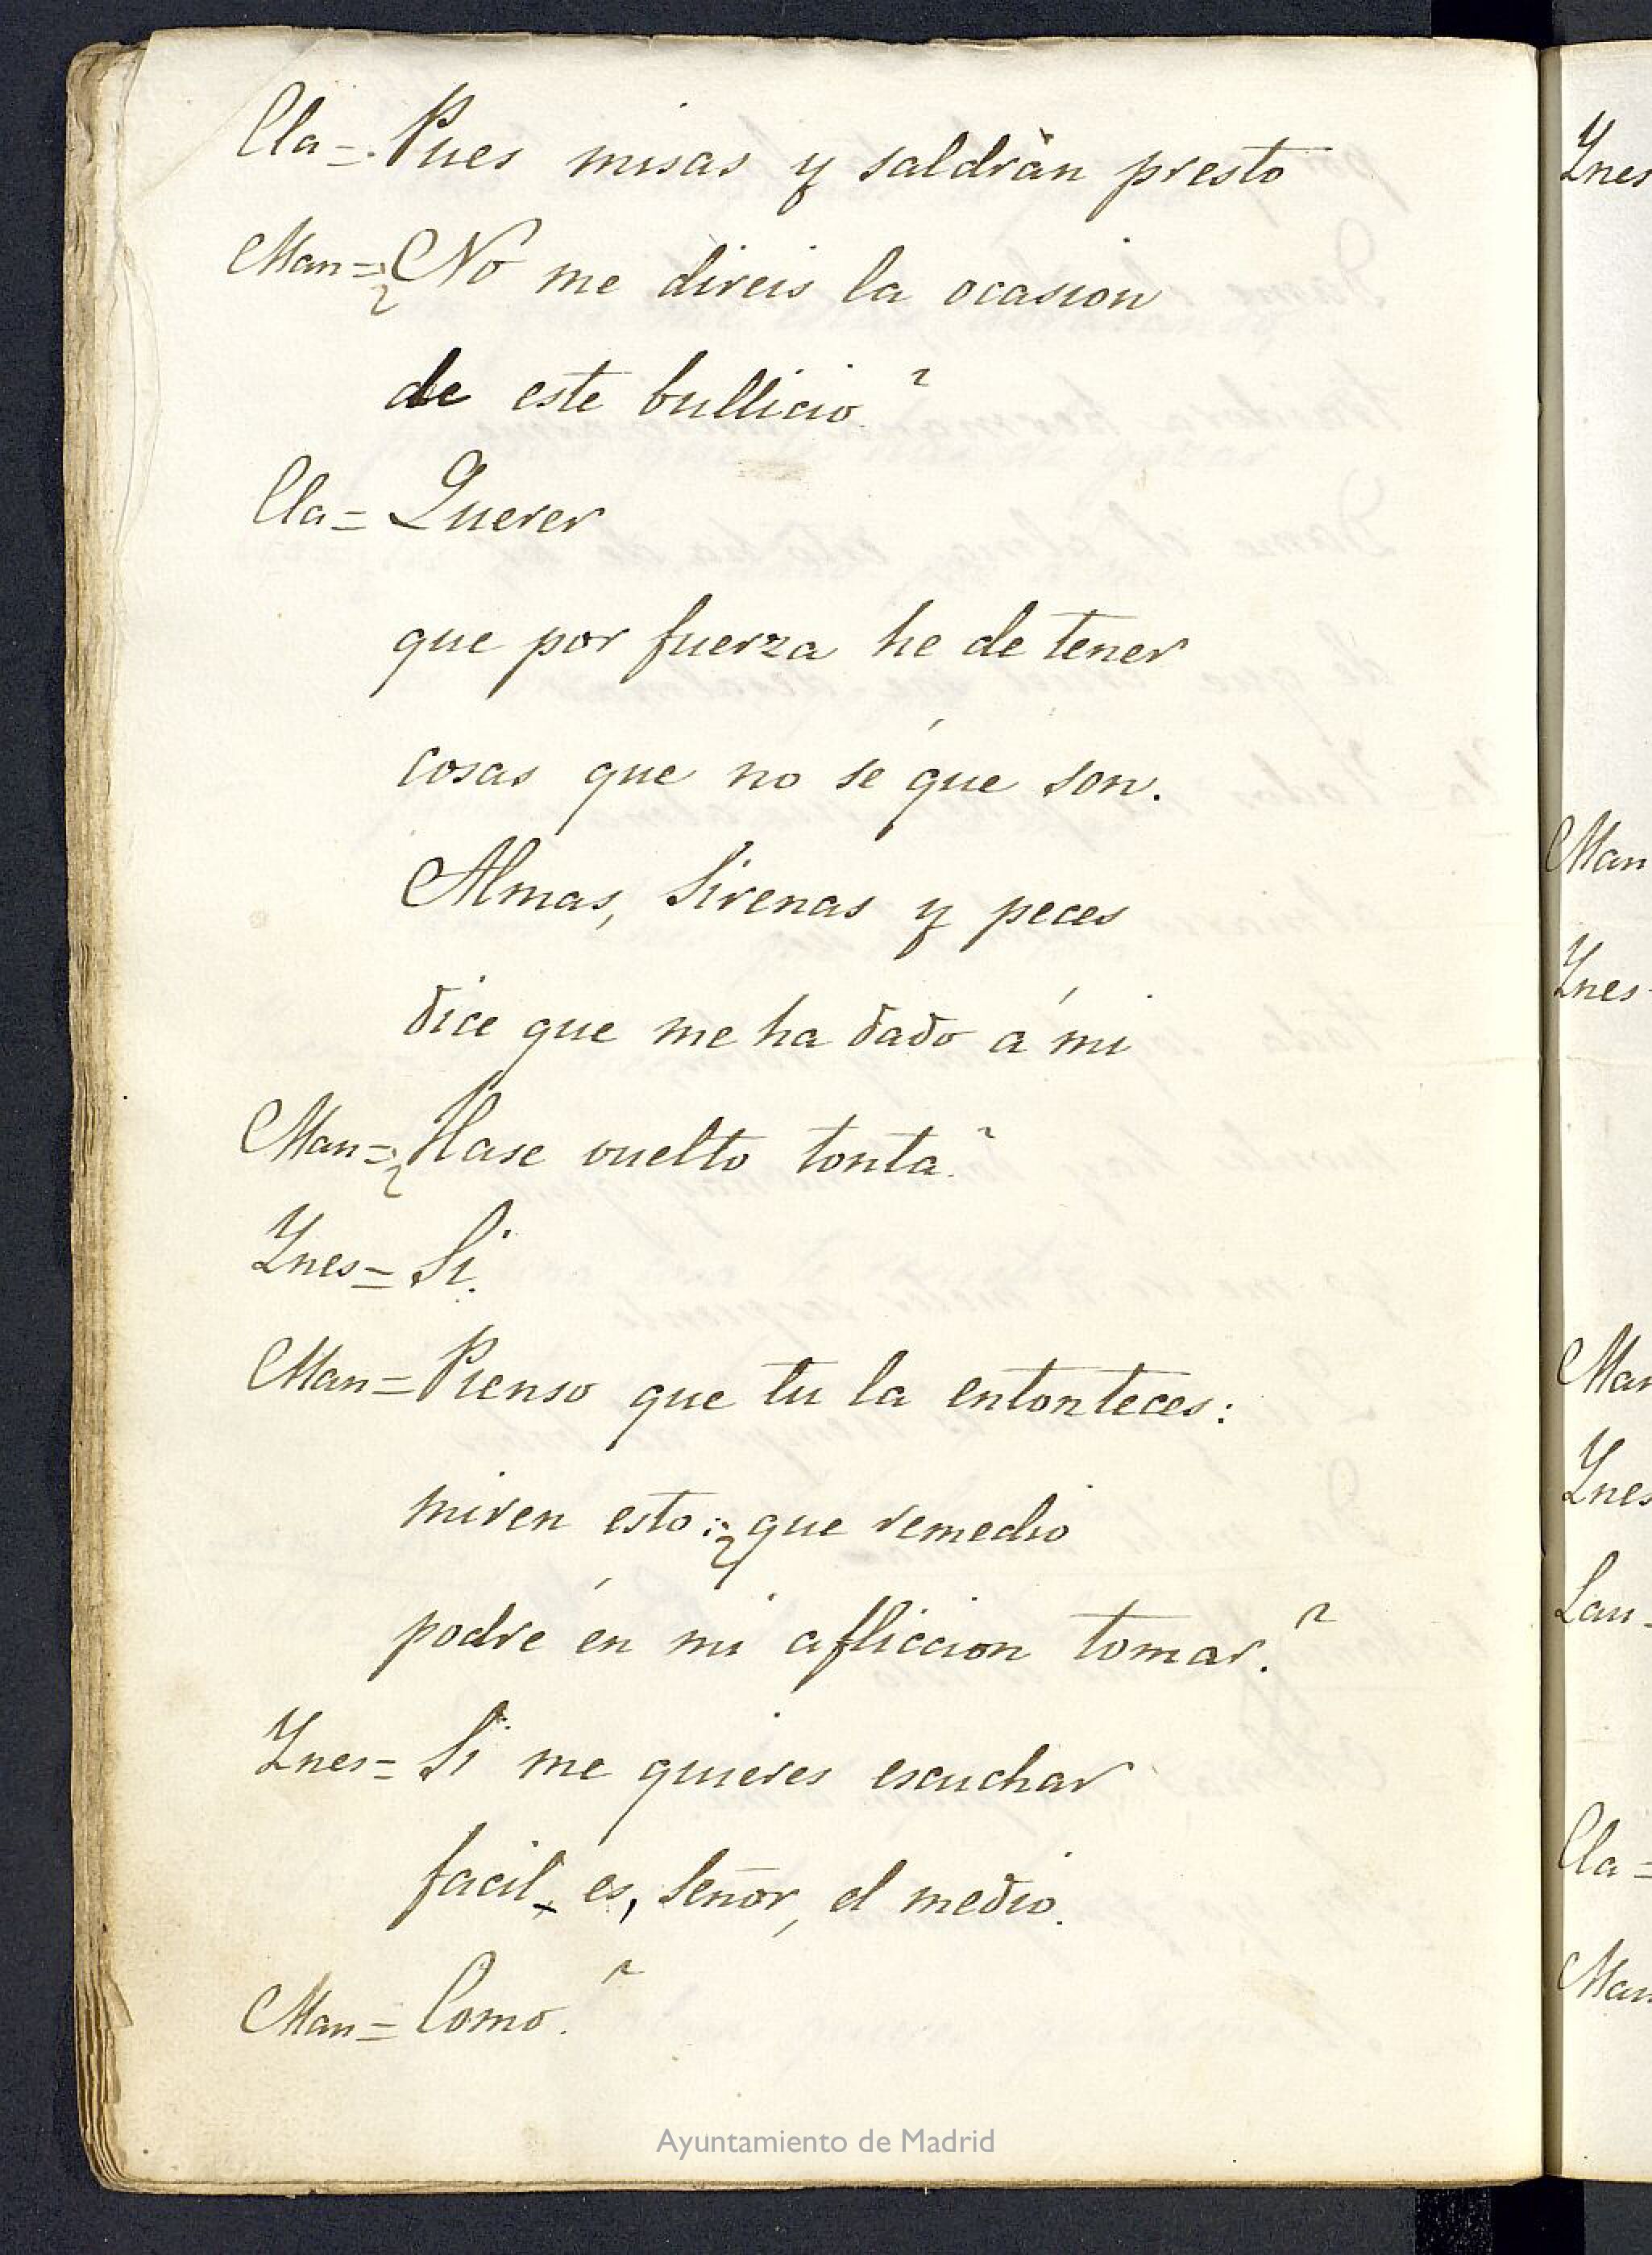 Cla=. Pues misas y saldràn presto
Man=¿No me direis la ocasion
de este bullicio?
Cla= Querer
que por fuerza he de tener
cosas que no sé que son.
Almas, Sirenas y peces
dice que me ha dado á mi
Man=¿Hase vuelto tonta?
Ynes= Si.
Man= Pienso que tu la entonteces:
miren esto: ¿que remedio
podré en mi afliccion tomar?
Ynes= Si me quieres escuchar
facil es, Señor, el medio.
Man= Como?
Ynes
Man
Ynes-
Man
Ynes
Lau-
Cla=
Man
Ayuntamiento de Madrid